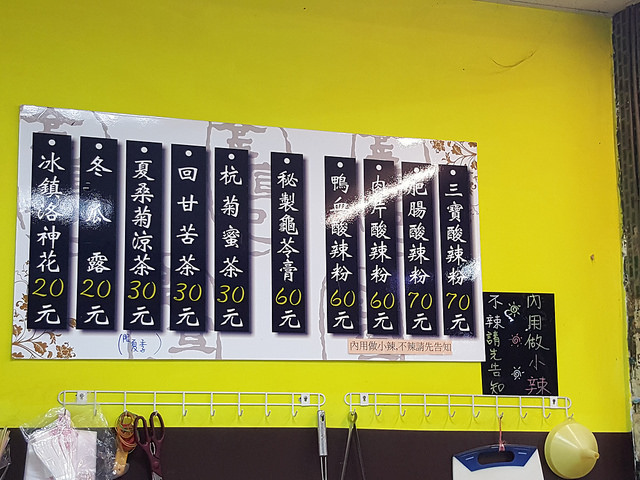 三寶酸辣粉70元
肥腸酸辣粉70元
肉片酸辣粉60元
鴨血酸辣粉60元
秘製龜苓膏60元
杭菊蜜茶30元
回甘苦茶30元
夏桑菊涼茶30元
冬瓜露20元
冰鎮洛神花20元
內用做小辣.不辣請先告知
內用做小辣
不辣請先告知